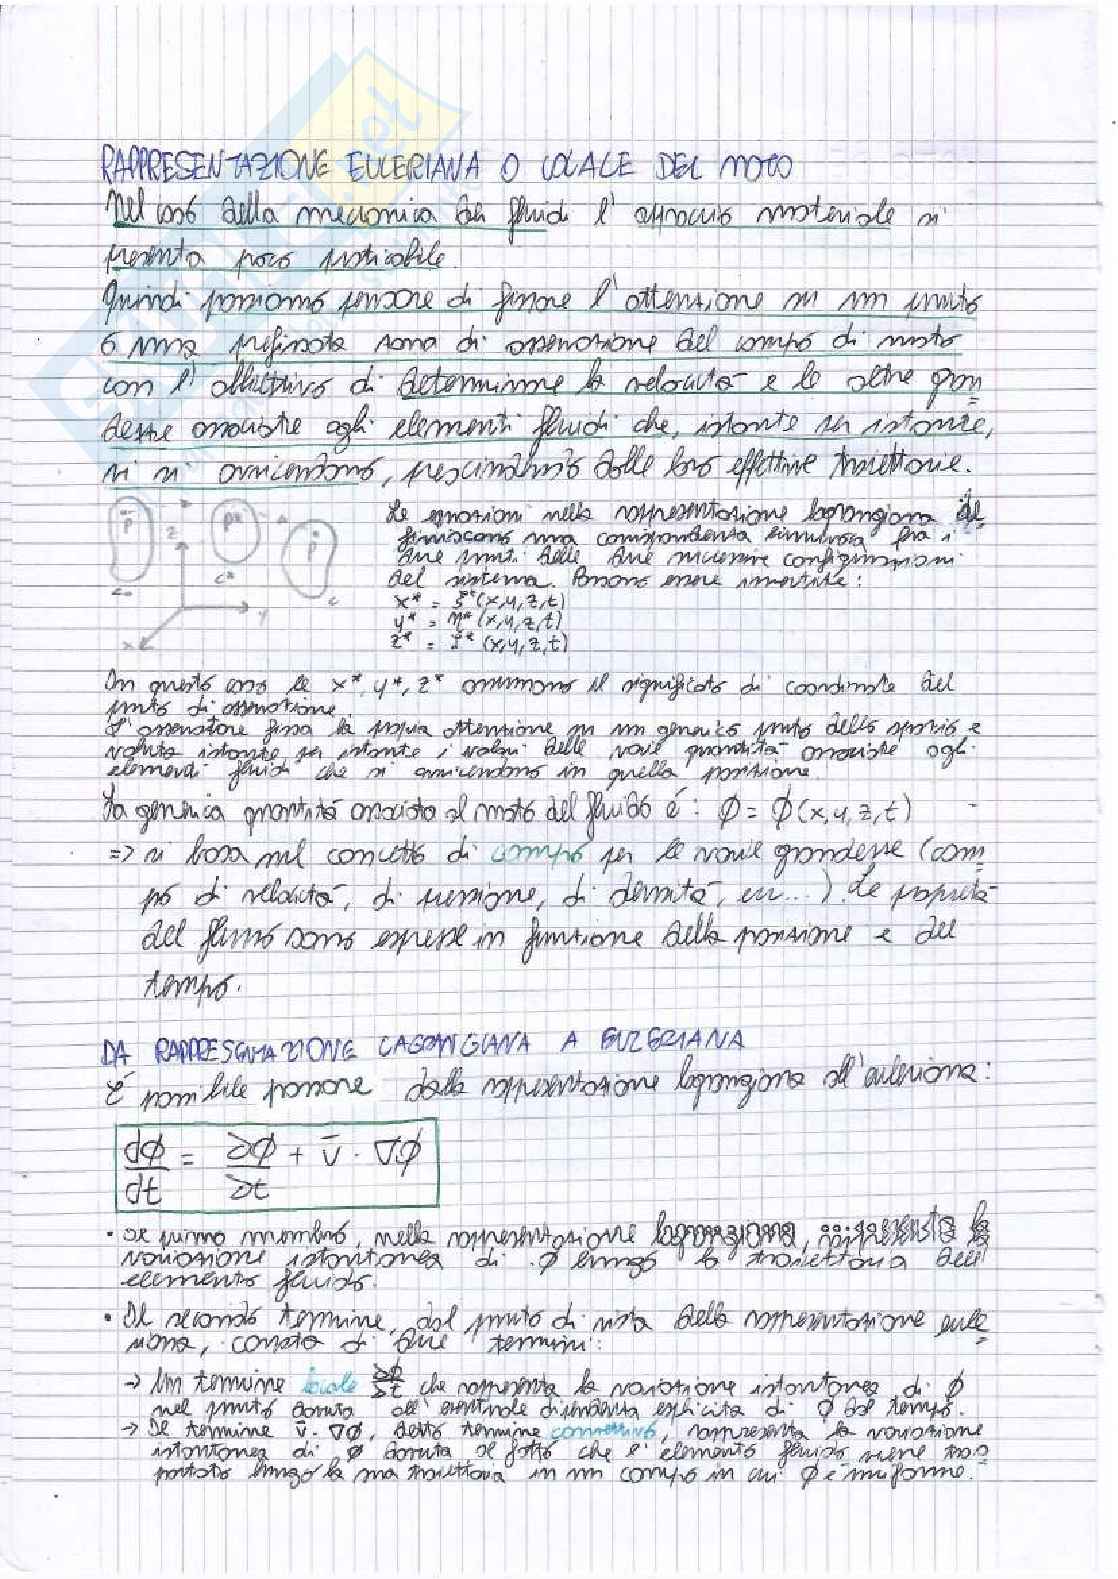 RAPPRESENTAZIONE EULERIANA O LOCALE DEL MOTO
Nel caso della meccanica dei fluidi l'approccio materiale si
presenta poco praticabile.
Quindi possiamo pensare di fissare l'attenzione su un punto
o una prefissata zona di osservazione del campo di moto
con l'obbiettivo di determinare la velocità e le altre gran
dezze associate agli elementi fluidi che, istante per istante,
vi si avvicendano, prescindendo dalle loro effettive traiettorie.
Le equazioni nella rappresentazione lagrangiana de
finiscono una corrispondenza biunivoca fra i
due punti delle due successive configurazioni
del sistema. Possono essere invertite:
x* = ξ*(x,y,z,t)
y* = η*(x,y,z,t)
z* = ζ*(x,y,z,t)
P̄ P* P̄
z
C*
y
x
In questo caso le x*, y*, z* assumono il significato di coordinate del
punto di osservazione.
L'osservatore fissa la propria attenzione su un generico punto dello spazio e
valuta istante per istante i valori delle varie quantità associate agli
elementi fluidi che si avvicendano in quella posizione.
La generica quantità associata al moto del fluido è: ϕ = ϕ(x,y,z,t)
=> si basa sul concetto di campo per le varie grandezze (cam
po di velocità, di pressione, di densità, ecc...). Le proprietà
del flusso sono espresse in funzione della posizione e del
tempo.
DA RAPPRESENTAZIONE LAGRANGIANA A EULERIANA
È possibile passare dalla rappresentazione lagrangiana all'euleriana:
dϕ/dt = ∂ϕ/∂t + v̄ · ∇ϕ
• Il primo membro, nella rappresentazione lagrangiana, rappresenta la
variazione istantanea di ϕ lungo la traiettoria dell'
elemento fluido.
• Il secondo termine, dal punto di vista della rappresentazione eule
riana, consta di due termini:
→ Un termine locale ∂ϕ/∂t che rappresenta la variazione istantanea di ϕ
nel punto dovuta all'eventuale dipendenza esplicita di ϕ dal tempo.
→ Il termine v̄ · ∇ϕ, detto termine convettivo, rappresenta la variazione
istantanea di ϕ dovuta al fatto che l'elemento fluido viene tras
portato lungo la sua traiettoria in un campo in cui ϕ è uniforme.